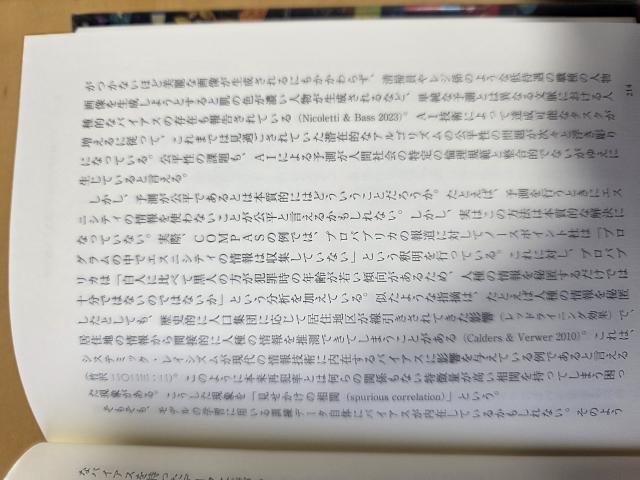 214
がつかないほど美麗な画像が生成されるにもかかわらず、清掃員やレジ係のような低待遇の職種の人物
画像を生成しようとすると肌の色が濃い人物が生成されるなど、単純な予測とは異なる文脈における人
種的なバイアスの存在も報告されている（Nicoletti & Bass 2023）。ＡＩ技術によって達成可能なタスクが
増えるに従って、これまでは見過ごされていた潜在的なアルゴリズムの公平性の問題が次々と浮き彫り
になっている。公平性の課題も、ＡＩによる予測が人間社会の特定の倫理規範と整合的でないがゆえに
生じていると言える。
しかし、予測が公平であるとは本質的にはどういうことだろうか。たとえば、予測を行うときにエス
ニシティの情報を使わないことが公平と言えるかもしれない。しかし、実はこの方法は本質的な解決に
なっていない。実際、ＣＯＭＰＡＳの例では、プロパブリカの報道に対してノースポイント社は「プロ
グラムの中でエスニシティの情報は収集していない」という釈明を行っている。これに対し、プロパブ
リカは「白人に比べて黒人の方が犯罪時の年齢が若い傾向があるため、人種の情報を秘匿するだけでは
十分ではないのではないか」という分析を加えている。似たような指摘は、たとえば人種の情報を秘匿
したとしても、歴史的に人口集団に応じて居住地区が線引きされてきた影響（レッドライニング効果）で、
居住地の情報から間接的に人種の情報を推測できてしまうことがある（Calders & Verwer 2010）。これは、
システミック・レイシズムが現代の情報技術に内在するバイアスに影響を与えている例であると言える
（竹沢）。このように本来再犯率とは何らの関係もない特徴量が高い相関を持ってしまう困っ
た現象がある。こうした現象を「見せかけの相関（spurious correlation）」という。
そもそも、モデルの学習に用いる訓練データ自体にバイアスが内在しているかもしれない。そのよう
なバイアスを持ったデータ